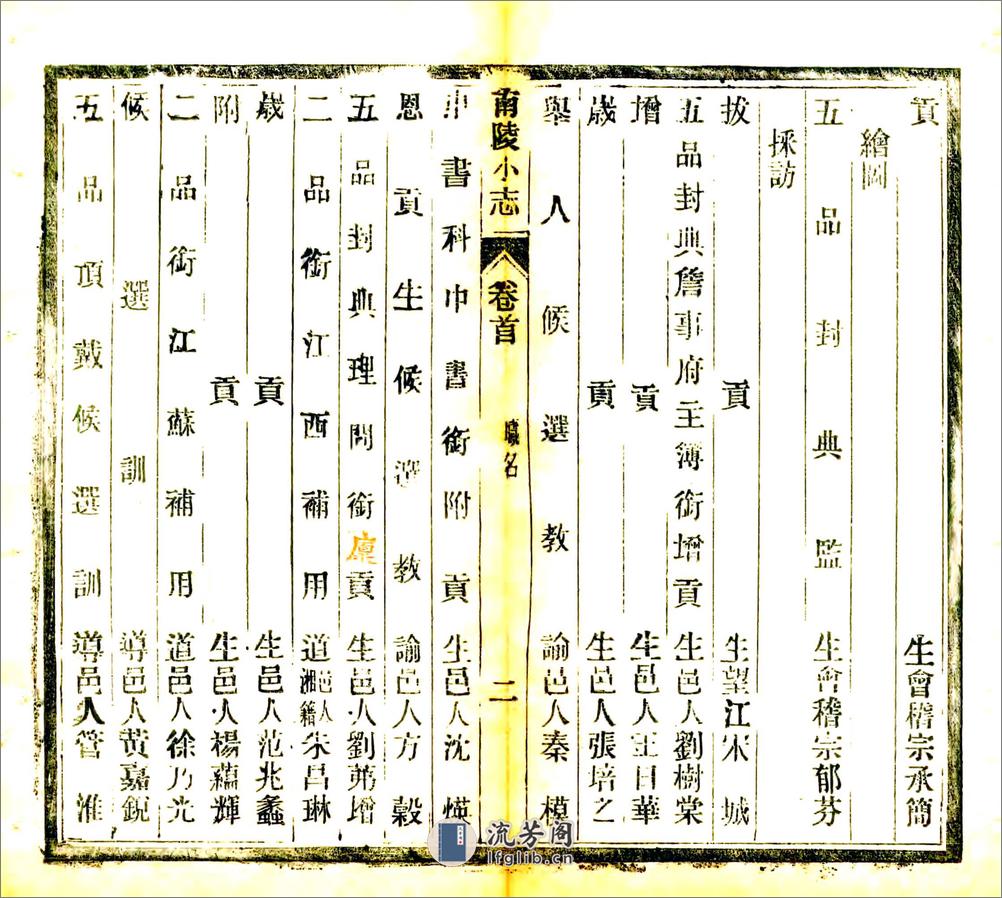 貢生會稽宗承簡
繪圖
五品封典監生會稽宗郁芬
採訪
拔貢生望江宋城
五品封典詹事府主簿銜增貢生邑人劉樹棠
增貢生邑人王日華
歲貢生邑人張培之
舉人候選教諭邑人秦模
南陵小志 卷首 職名 二
中書科中書銜附貢生邑人沈煐
恩貢生候選教諭邑人方榖
五品封典理問銜廩貢生邑人劉苐增
二品銜江西補用道邑人湘籍朱呂琳
歲貢生邑人范兆蠡
附貢生邑人楊蘊輝
二品銜江蘇補用道邑人徐乃光
候選訓導邑人黃嘉銳
五品頂戴候選訓導邑人管淮
流芳阁
lfglib.cn